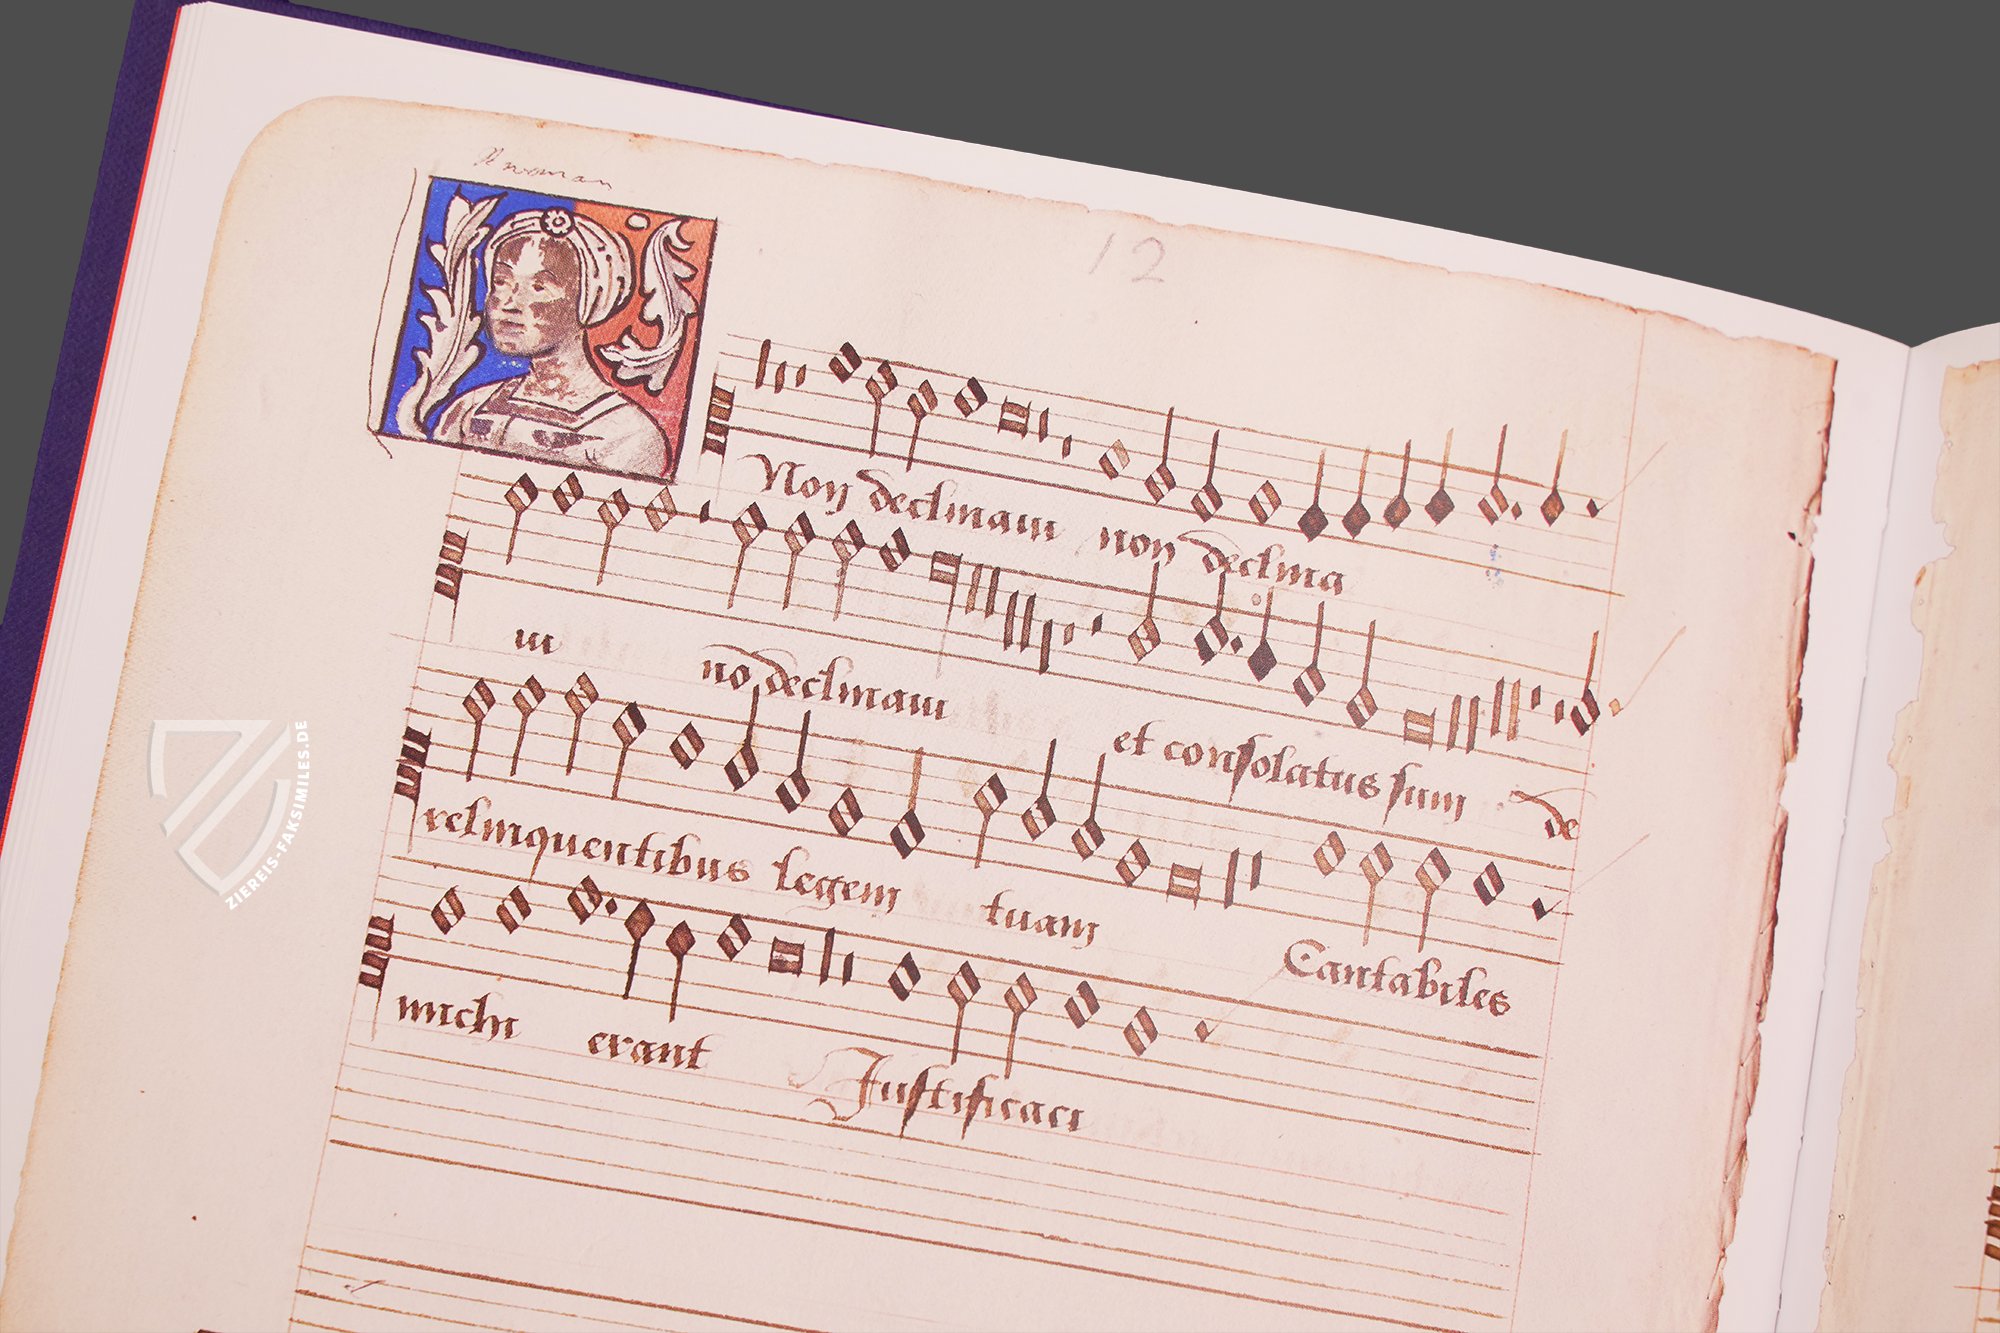 A woman
12
Non declinaui non declina
ui no declinaui et consolatus sum de
relinquentibus legem tuam Cantabiles
michi erant Justificaci
ZIEREIS-FAKSIMILES.DE